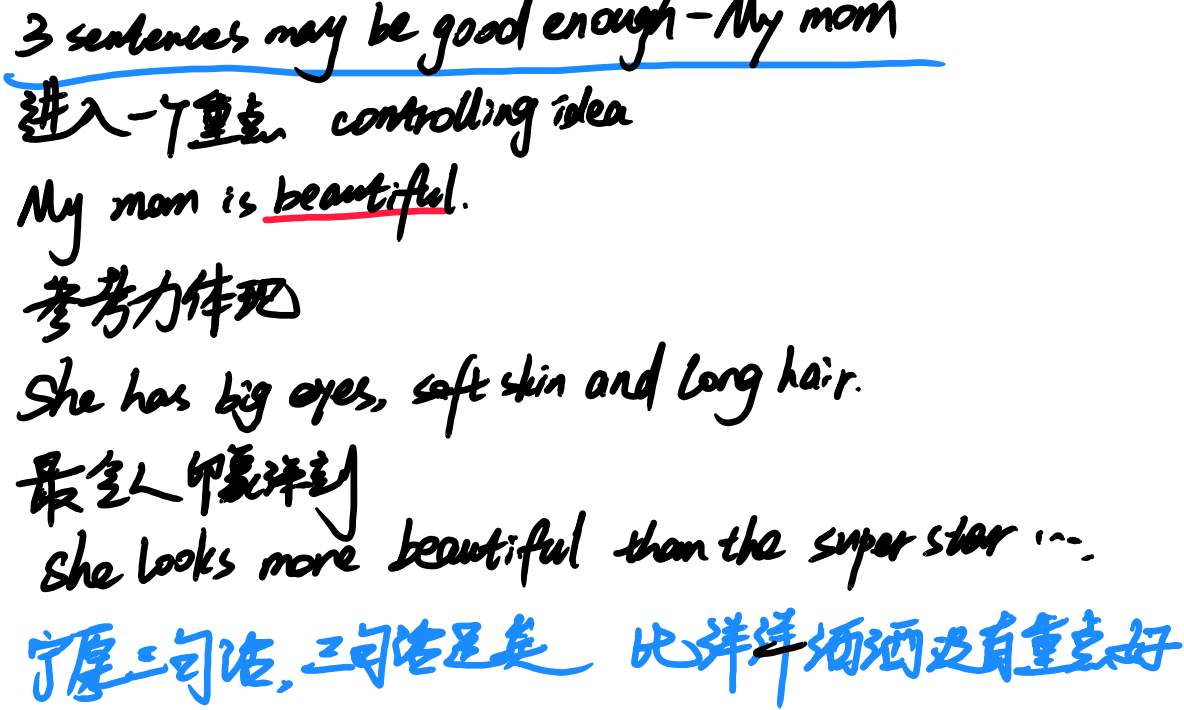 3 sentences may be good enough - My mom
进入一个重点 controlling idea
My mom is beautiful.
参考力体现
She has big eyes, soft skin and long hair.
最令人印象深刻
She looks more beautiful than the super star ….
宁愿三句话,三句话足矣 比洋洋洒洒没有重点好